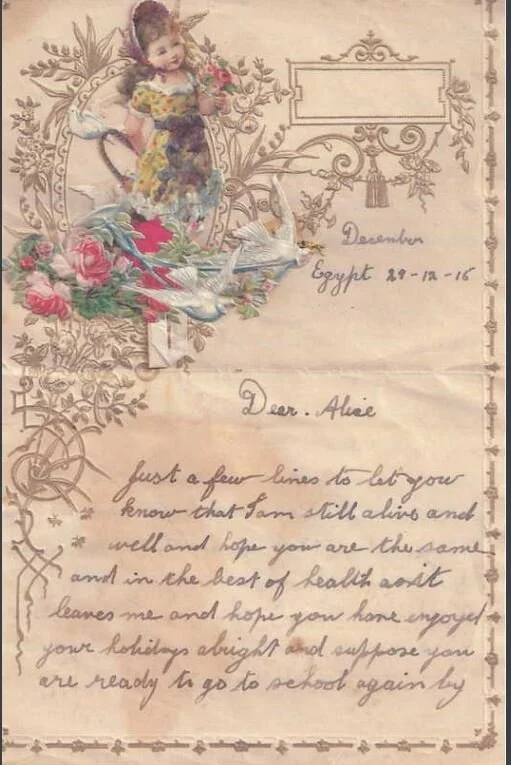 December
Egypt 29-12-15
Dear. Alice
Just a few lines to let you
know that I am still alive and
well and hope you are the same
and in the best of health as it
leaves me and hope you have enjoyed
your holidays alright and suppose you
are ready to go to school again by